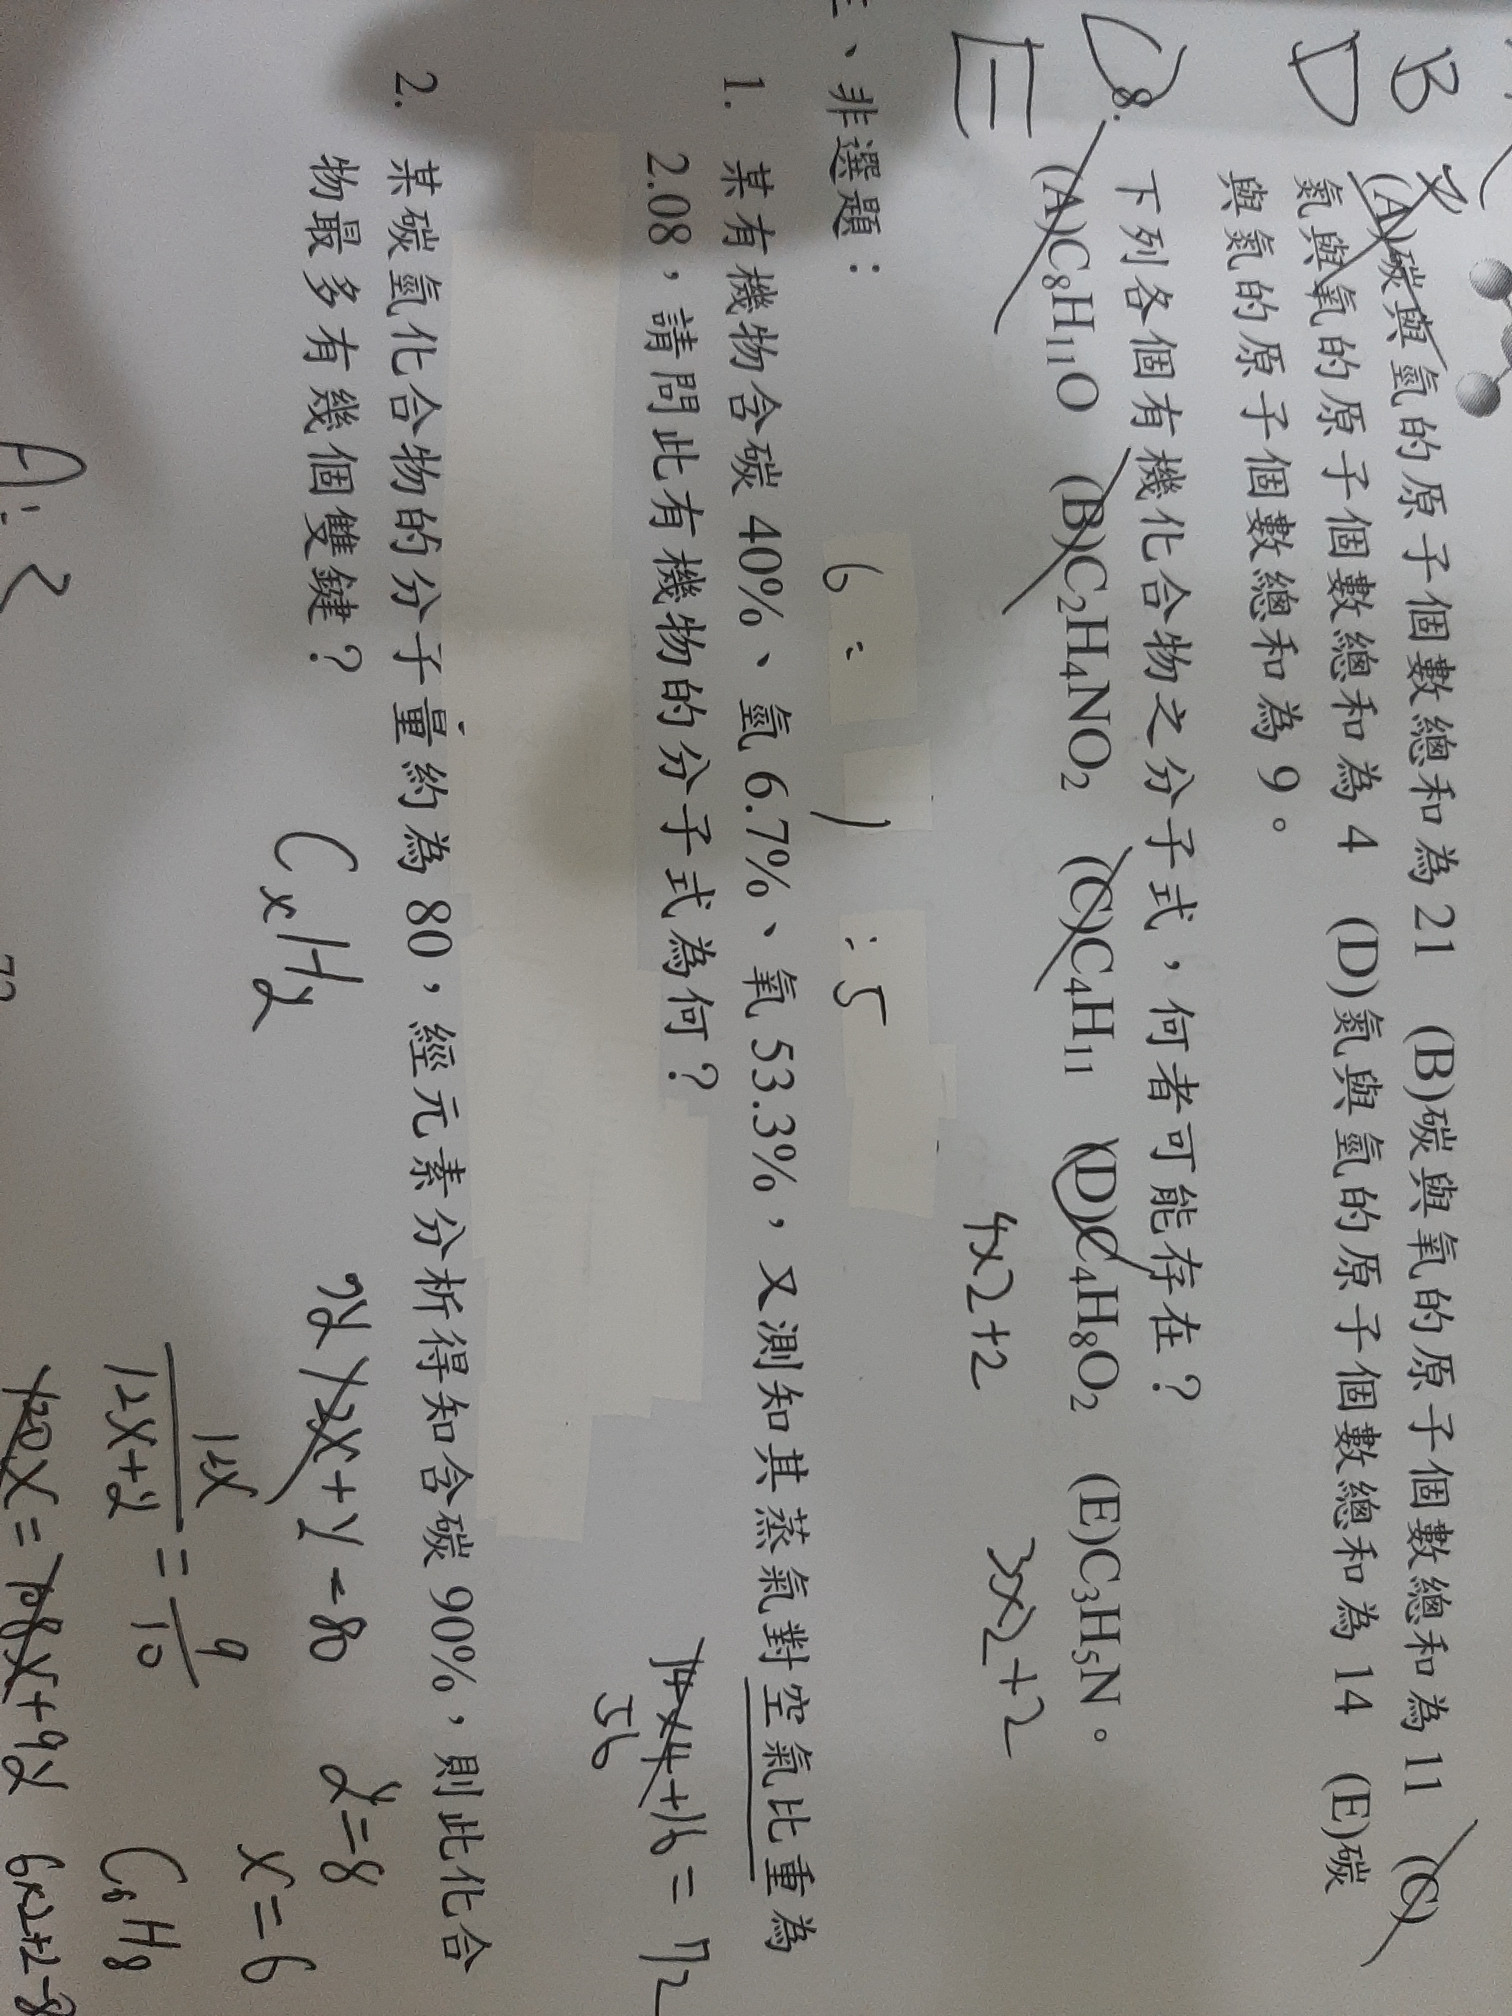 B
D
(A)碳與氫的原子個數總和為 21 (B)碳與氧的原子個數總和為 11 (C)
氮與氧的原子個數總和為 4 (D)氮與氫的原子個數總和為 14 (E)碳
與氮的原子個數總和為 9。
8. 下列各個有機化合物之分子式，何者可能存在？
(A)C₈H₁₁O (B)C₂H₄NO₂ (C)C₄H₁₁ (D)C₄H₈O₂ (E)C₃H₅N。
4x2+2 3x2+2
三、非選題：
6 : 1 : 5
1. 某有機物含碳 40%、氫 6.7%、氧 53.3%，又測知其蒸氣對空氣比重為
2.08，請問此有機物的分子式為何？
14x4+16=72
56
2. 某碳氫化合物的分子量約為 80，經元素分析得知含碳 90%，則此化合
物最多有幾個雙鍵？
12x+y=80 y=8
CxHy x=6
12x/12x+y = 9/10 C₆H₈
120x=108x+9y 6x2+2-8
A: